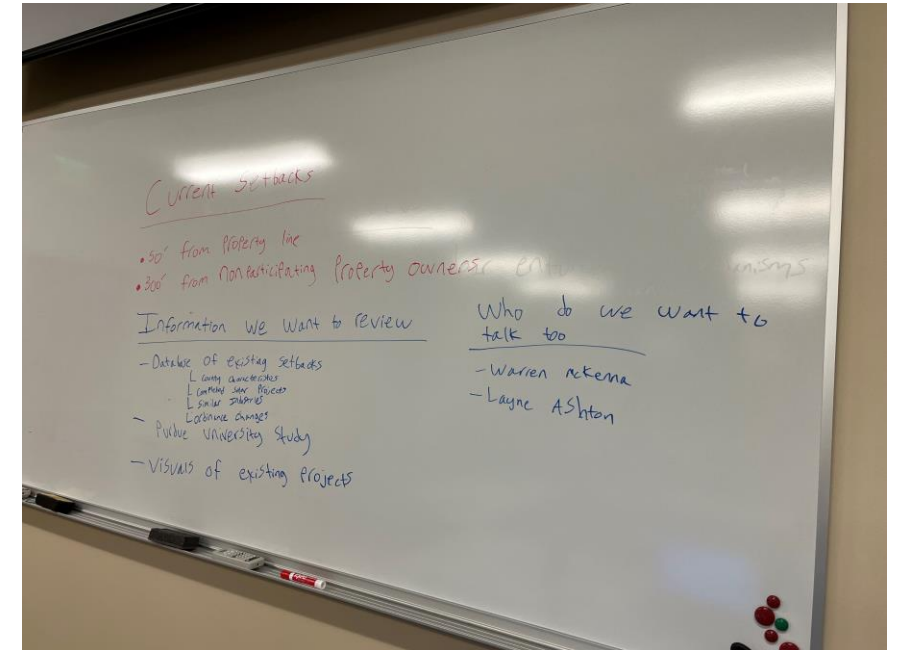 Current Setbacks
• 50' from Property line
• 300' from Nonparticipating Property owners
Information we want to review
- Database of existing setbacks
L County characteristics
L Completed solar Projects
L Similar Industries
L ordinance changes
- Purdue University Study
- Visuals of existing Projects
Who do we want to
talk too
- Warren McKenna
- Layne Ashton